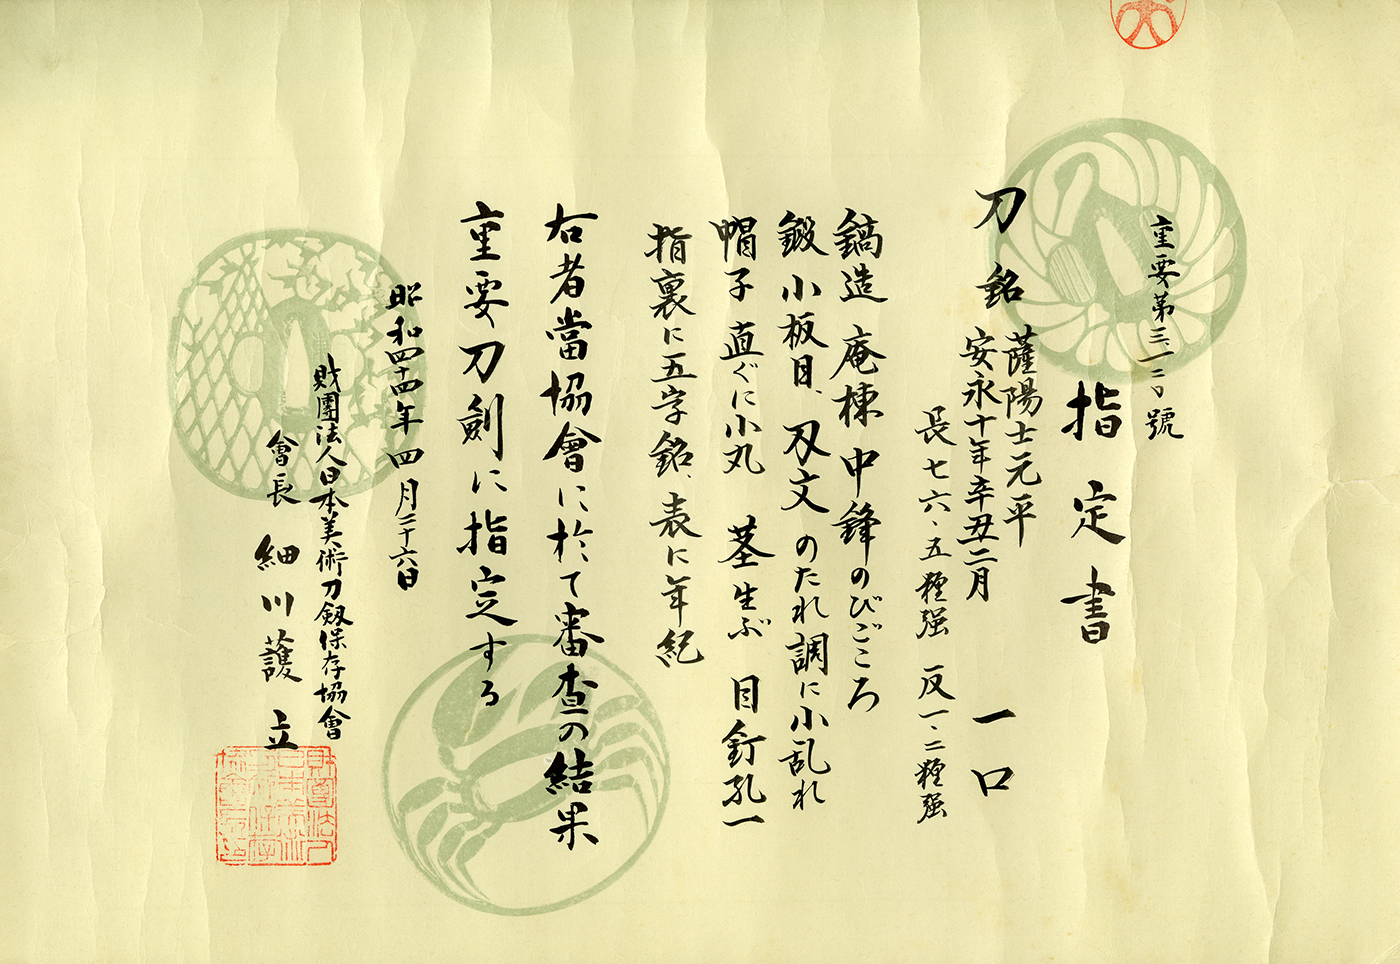 重要第三、一二〇號
指定書
刀 銘 薩陽士元平 一口
安永十年辛丑二月
長七六・五糎强 反一・二糎强
鎬造 庵棟 中鋒のびごころ
鍛小板目、刃文のたれ調に小乱れ
帽子直ぐに小丸 茎生ぶ 目釘孔一
指裏に五字銘、表に年紀
右者當協會に於て審査の結果
重要刀劍に指定する
昭和四十四年四月二十六日
財團法人日本美術刀劔保存協會
會長 細川護立